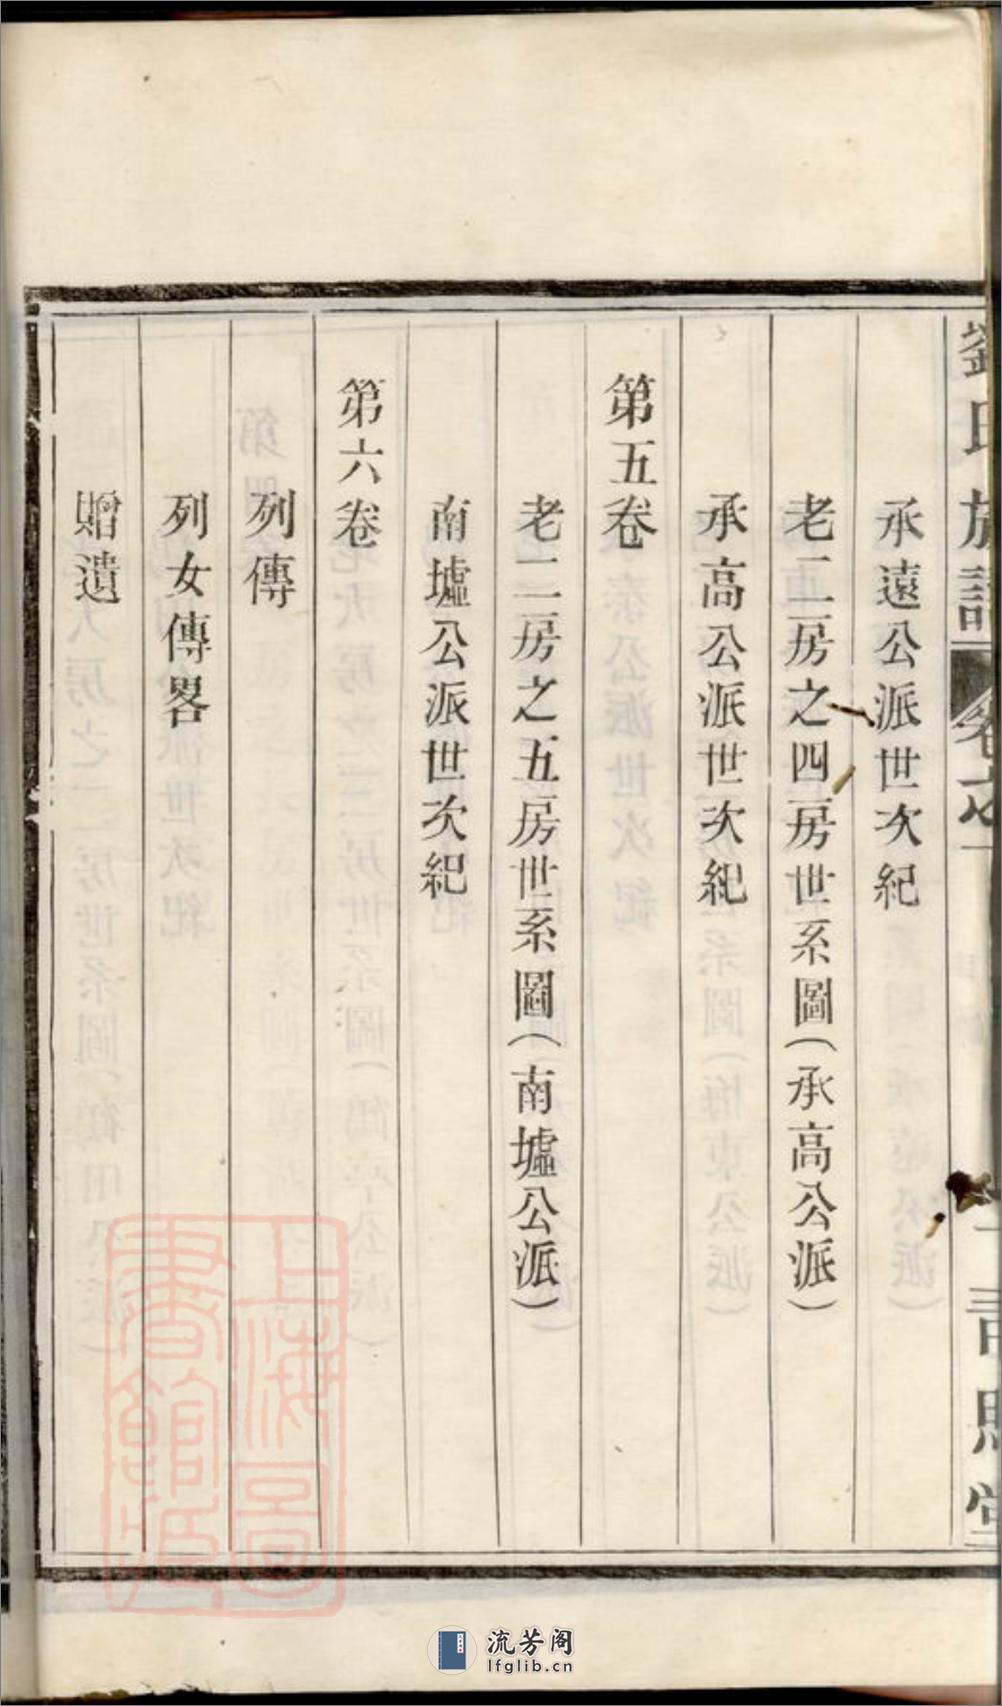 劉氏族譜 卷之一
承遠公派世次紀
老二房之四房世系圖（承高公派）
承高公派世次紀
第五卷
老二房之五房世系圖（南墟公派）
南墟公派世次紀
第六卷
列傳
列女傳畧
贈遺
上海圖
書館藏
流芳阁
lfglib.cn